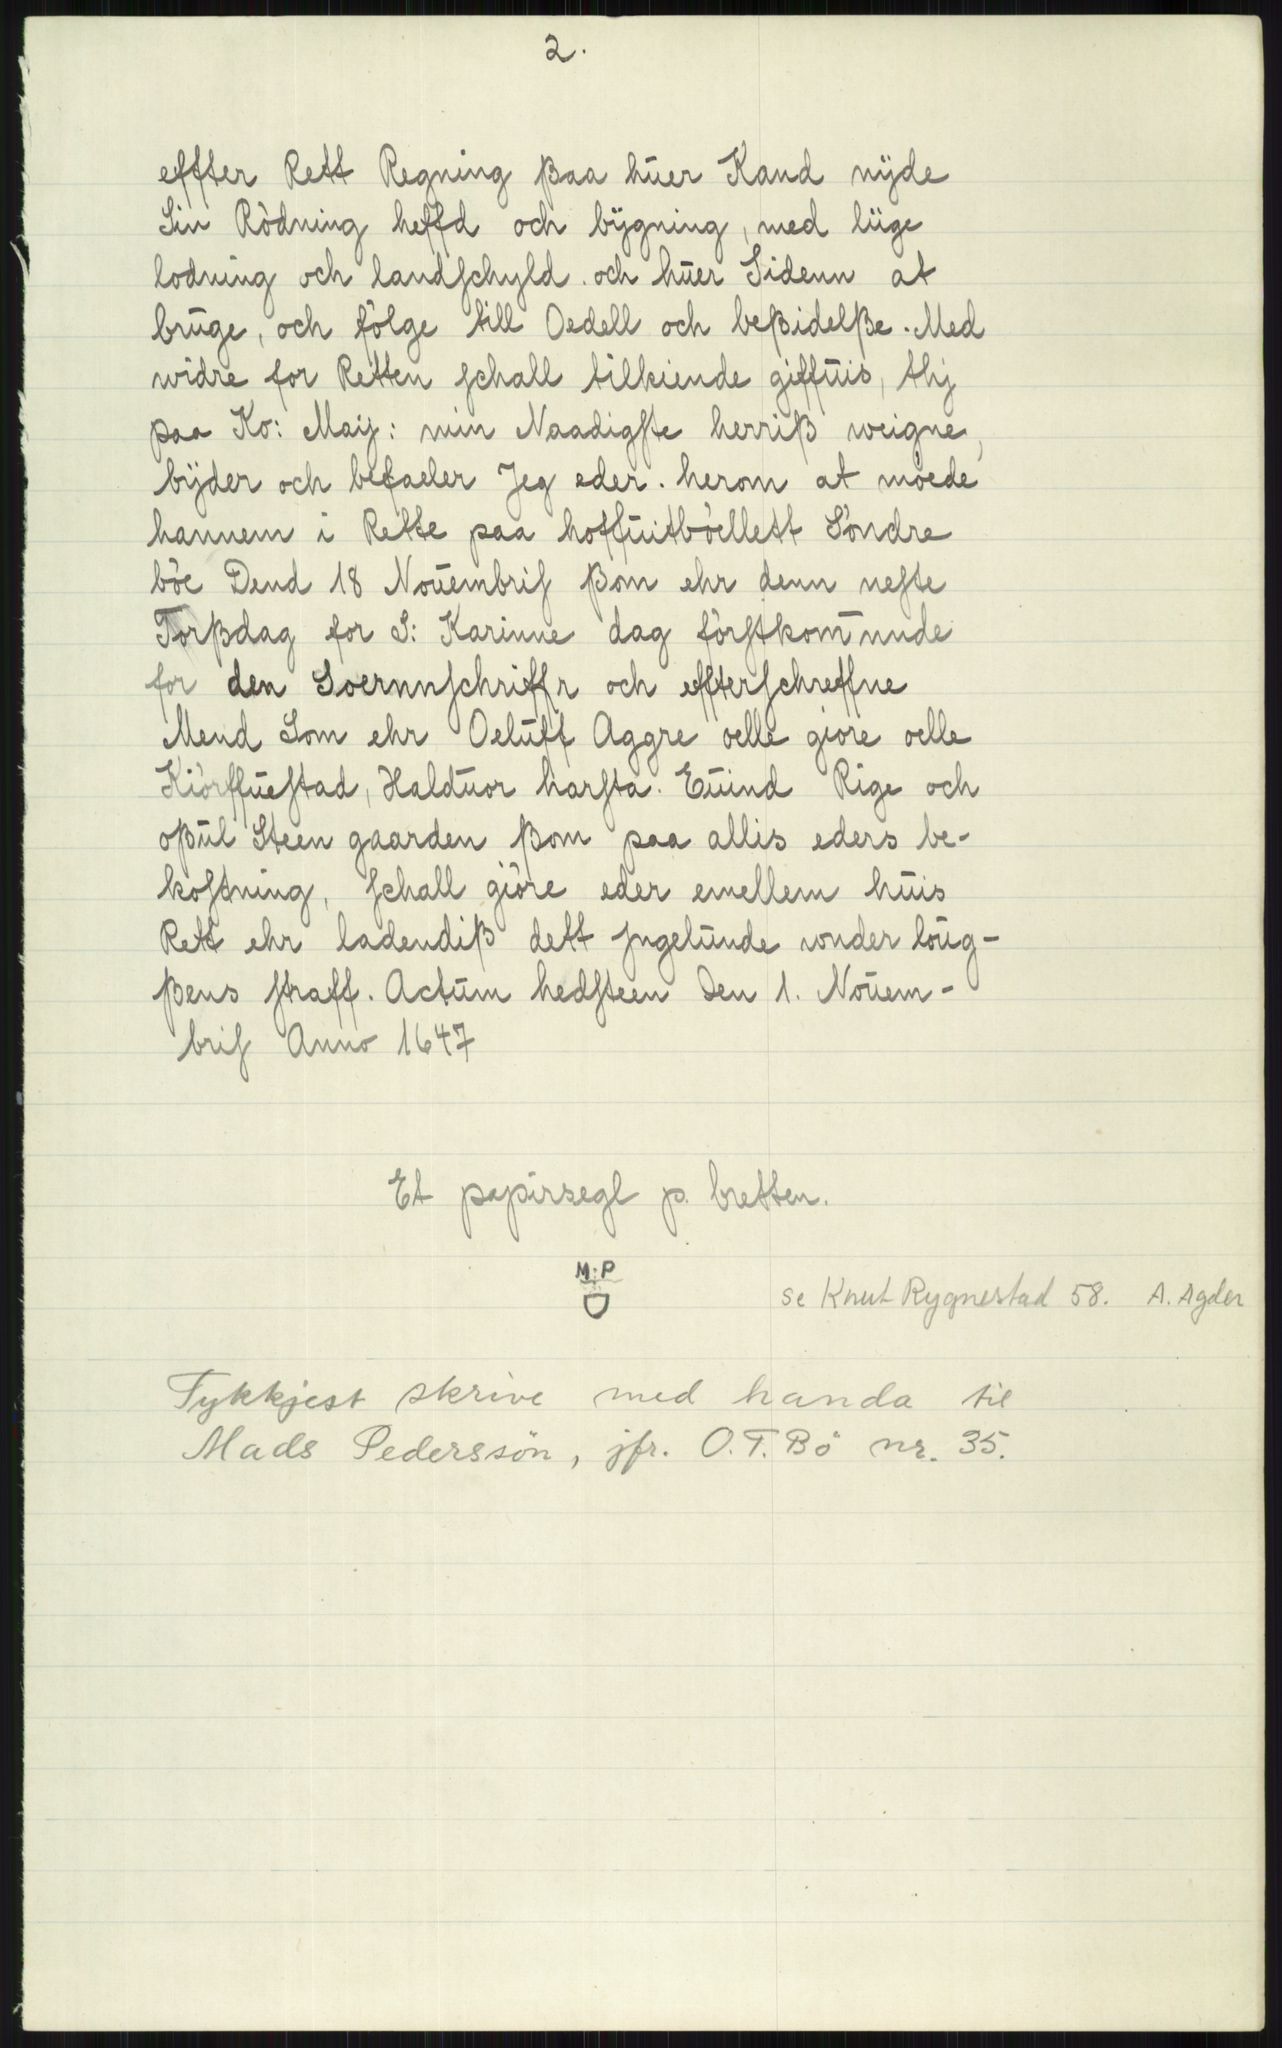 2.
effter Rett Regning ßaa huer Kand nÿde
Sin Rödning heffd och bÿgning, med liige
lodning och landschyld. och huer Sidenn at
bruge, och fölge till Oedell och beßidelße. Med
widre for Retten schall tilkiende giffuis, thj
paa Ko: Maij: min Naadigste herriß weigne,
bÿder och befaeler Jeg eder. herom at möede
hannem i Rette paa hoffuitböellett Söndre
böe Dend 18 Nouembris ßom ehr denn neste
Torßdag for S: Karinne dag förstkom̄nude
for den Soernnschriffr och effterschreffne
Mend Som ehr Oeluff Aggre oelle giore oelle
Kiörffuestad, Halduor harsta. Euind Rige och
oßul Steen gaarden ßom paa allis eders be-
kostning, schall giöre eder emellem huis
Rett ehr ladendiß dett jngelunde wnder loug-
ßens straff. Actum hedsteen Den 1. Nouem-
bris Anno 1647
Et papirsegl p. bretten.
M.P
se Knut Rygnestad 58. A. Agder
Tykkjest skrive med handa til
Mads Pederssön, jfr. O.T. Bö nr. 35.